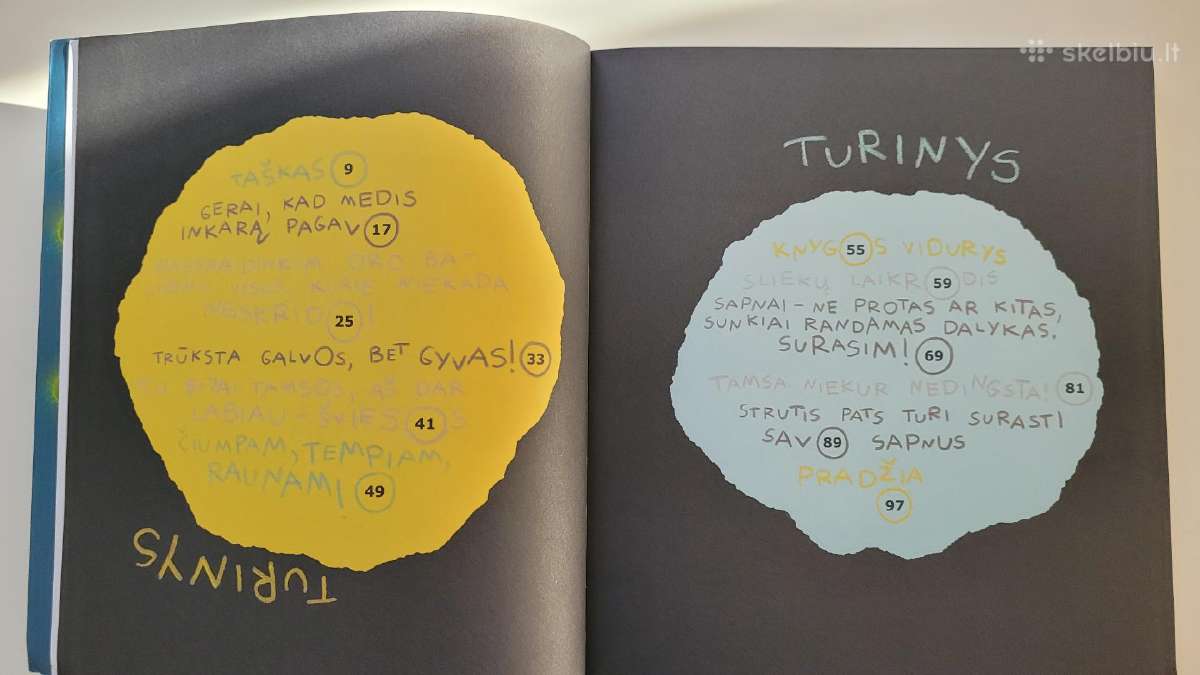 TAŠKAS 9
GERAI, KAD MEDIS
INKARĄ PAGAV 17
ORO BA-
VISUS, KURIE NIEKADA
NESKRID 25 !
TRŪKSTA GALVOS, BET GYVAS! 33
TU BIJAI TAMSOS, AŠ DAR
LABIAU – ŠVIES 41 S
ČIUMPAM, TEMPIAM,
RAUNAM! 49
TURINYS
TURINYS
KNYG 55 S VIDURYS
SLIEKŲ LAIKR 59 DIS
SAPNAI – NE PROTAS AR KITAS,
SUNKIAI RANDAMAS DALYKAS.
SURASIM! 69
TAMSA NIEKUR NEDINGSTA! 81
STRUTIS PATS TURI SURASTI
SAV 89 SAPNUS
PRADŽIA
97
skelbiu.lt